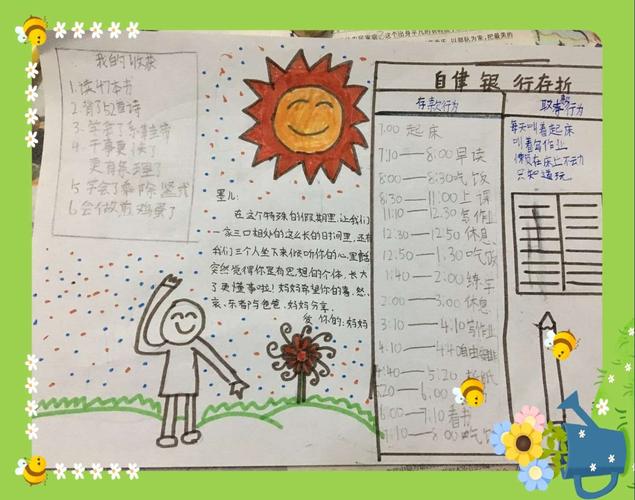 我的收获
1.读47本书
2.背了52首诗
3.学会了系鞋带
4.干事更快了
更有条理了
5.学会了乘除竖式
6.会做煎鸡蛋了
墨儿:
在这个特殊的假期里,让我们
一家三口相处的这么长的日间里,还有
我们三个人坐下来倾听你的心里话
突然觉得你是有思想的个体,长大
了更懂事啦!妈妈希望你的喜、怒、
哀、乐都与爸爸、妈妈分享。
爱你的:妈妈
自律银行存折
存款行为
7:00 起床
7:10——8:00早读
8:00——8:30吃饭
8:30——11:00上课
11:10——12:30写作业
12:30——12:50休息
12:50——1:30吃饭
1:40——2:00练字
2:00——3:00休息
3:10——4:10写作业
4:10——4:40自由安排
4:40——5:20
5:20——6:00
6:00——7:10看书
7:10——8:00吃饭
取款行为
每天叫着起床
叫着写作业
懒在床上不动
只知道玩